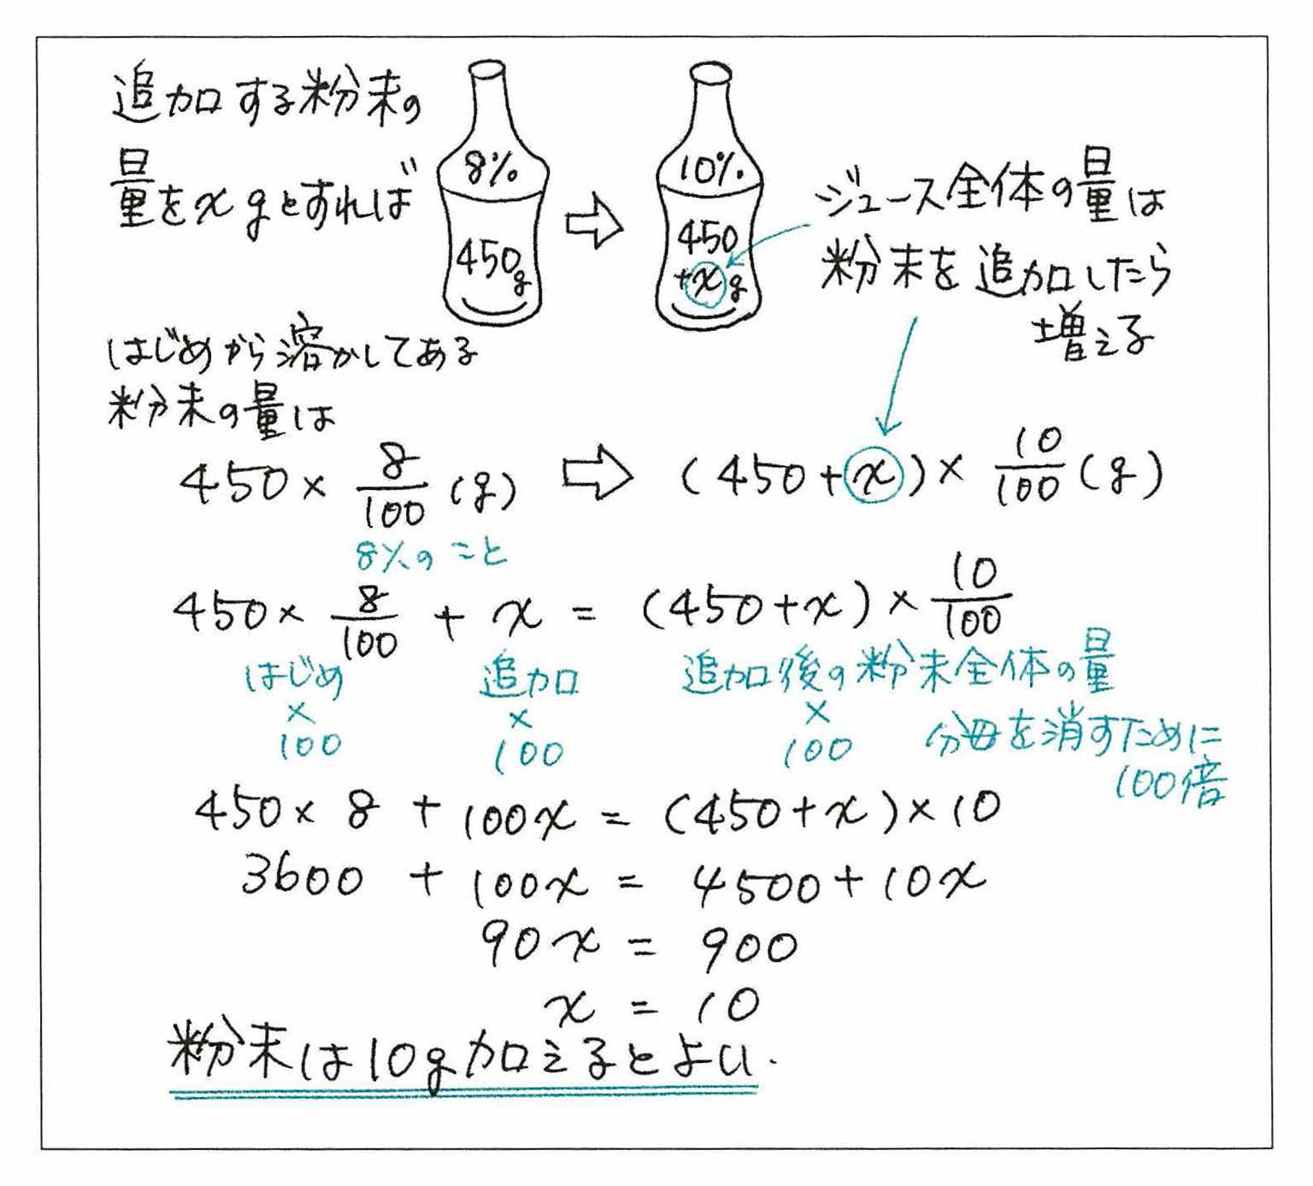 追加する粉末の
量をxgとすれば
8%
450g
⇨
10%
450
+xg
ジュース全体の量は
粉末を追加したら
増える
はじめから溶かしてある
粉末の量は
450 × 8/100 (g) ⇨ (450+x) × 10/100 (g)
8%のこと
450 × 8/100 + x = (450+x) × 10/100
はじめ 追加 追加後の粉末全体の量
× × ×
100 100 100
分母を消すために
100倍
450 × 8 + 100x = (450+x)×10
3600 + 100x = 4500+10x
90x = 900
x = 10
粉末は10g加えるとよい.